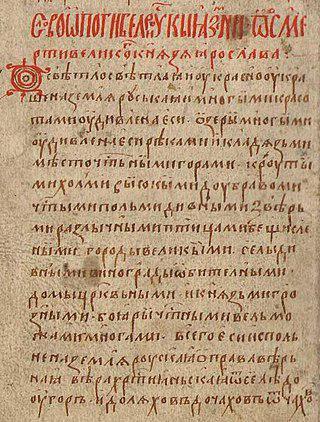 Слово ѡ погибели Рускыꙗ земли и ѡ смє
рти великого кнѧзѧ Ӕрослава
Ѡ свѣтло свѣтлаꙗ и украсно украше
на землѧ Руськаꙗ и многыми красо
тами удивлена еси ѡзеры многыми
удивлена еси рѣками и кладѧзьми
мѣсточестьными горами крутыми
холми высокыми дубравоми
чстыми польми дивными звѣрь
ми различьными птицами бещислє
ными городы великыми селы ди
вными винограды ѡбителными
домы црковьными и кнѧзьми гро
зными боѧры честными вельмо
жами многами всего еси испол
нена землѧ Русскаꙗ ѡ правовѣрь
наꙗ вѣра хрстиꙗньскаꙗ ѿселѣ до
угоръ и до лѧховъ до чаховъ ѿ чахов